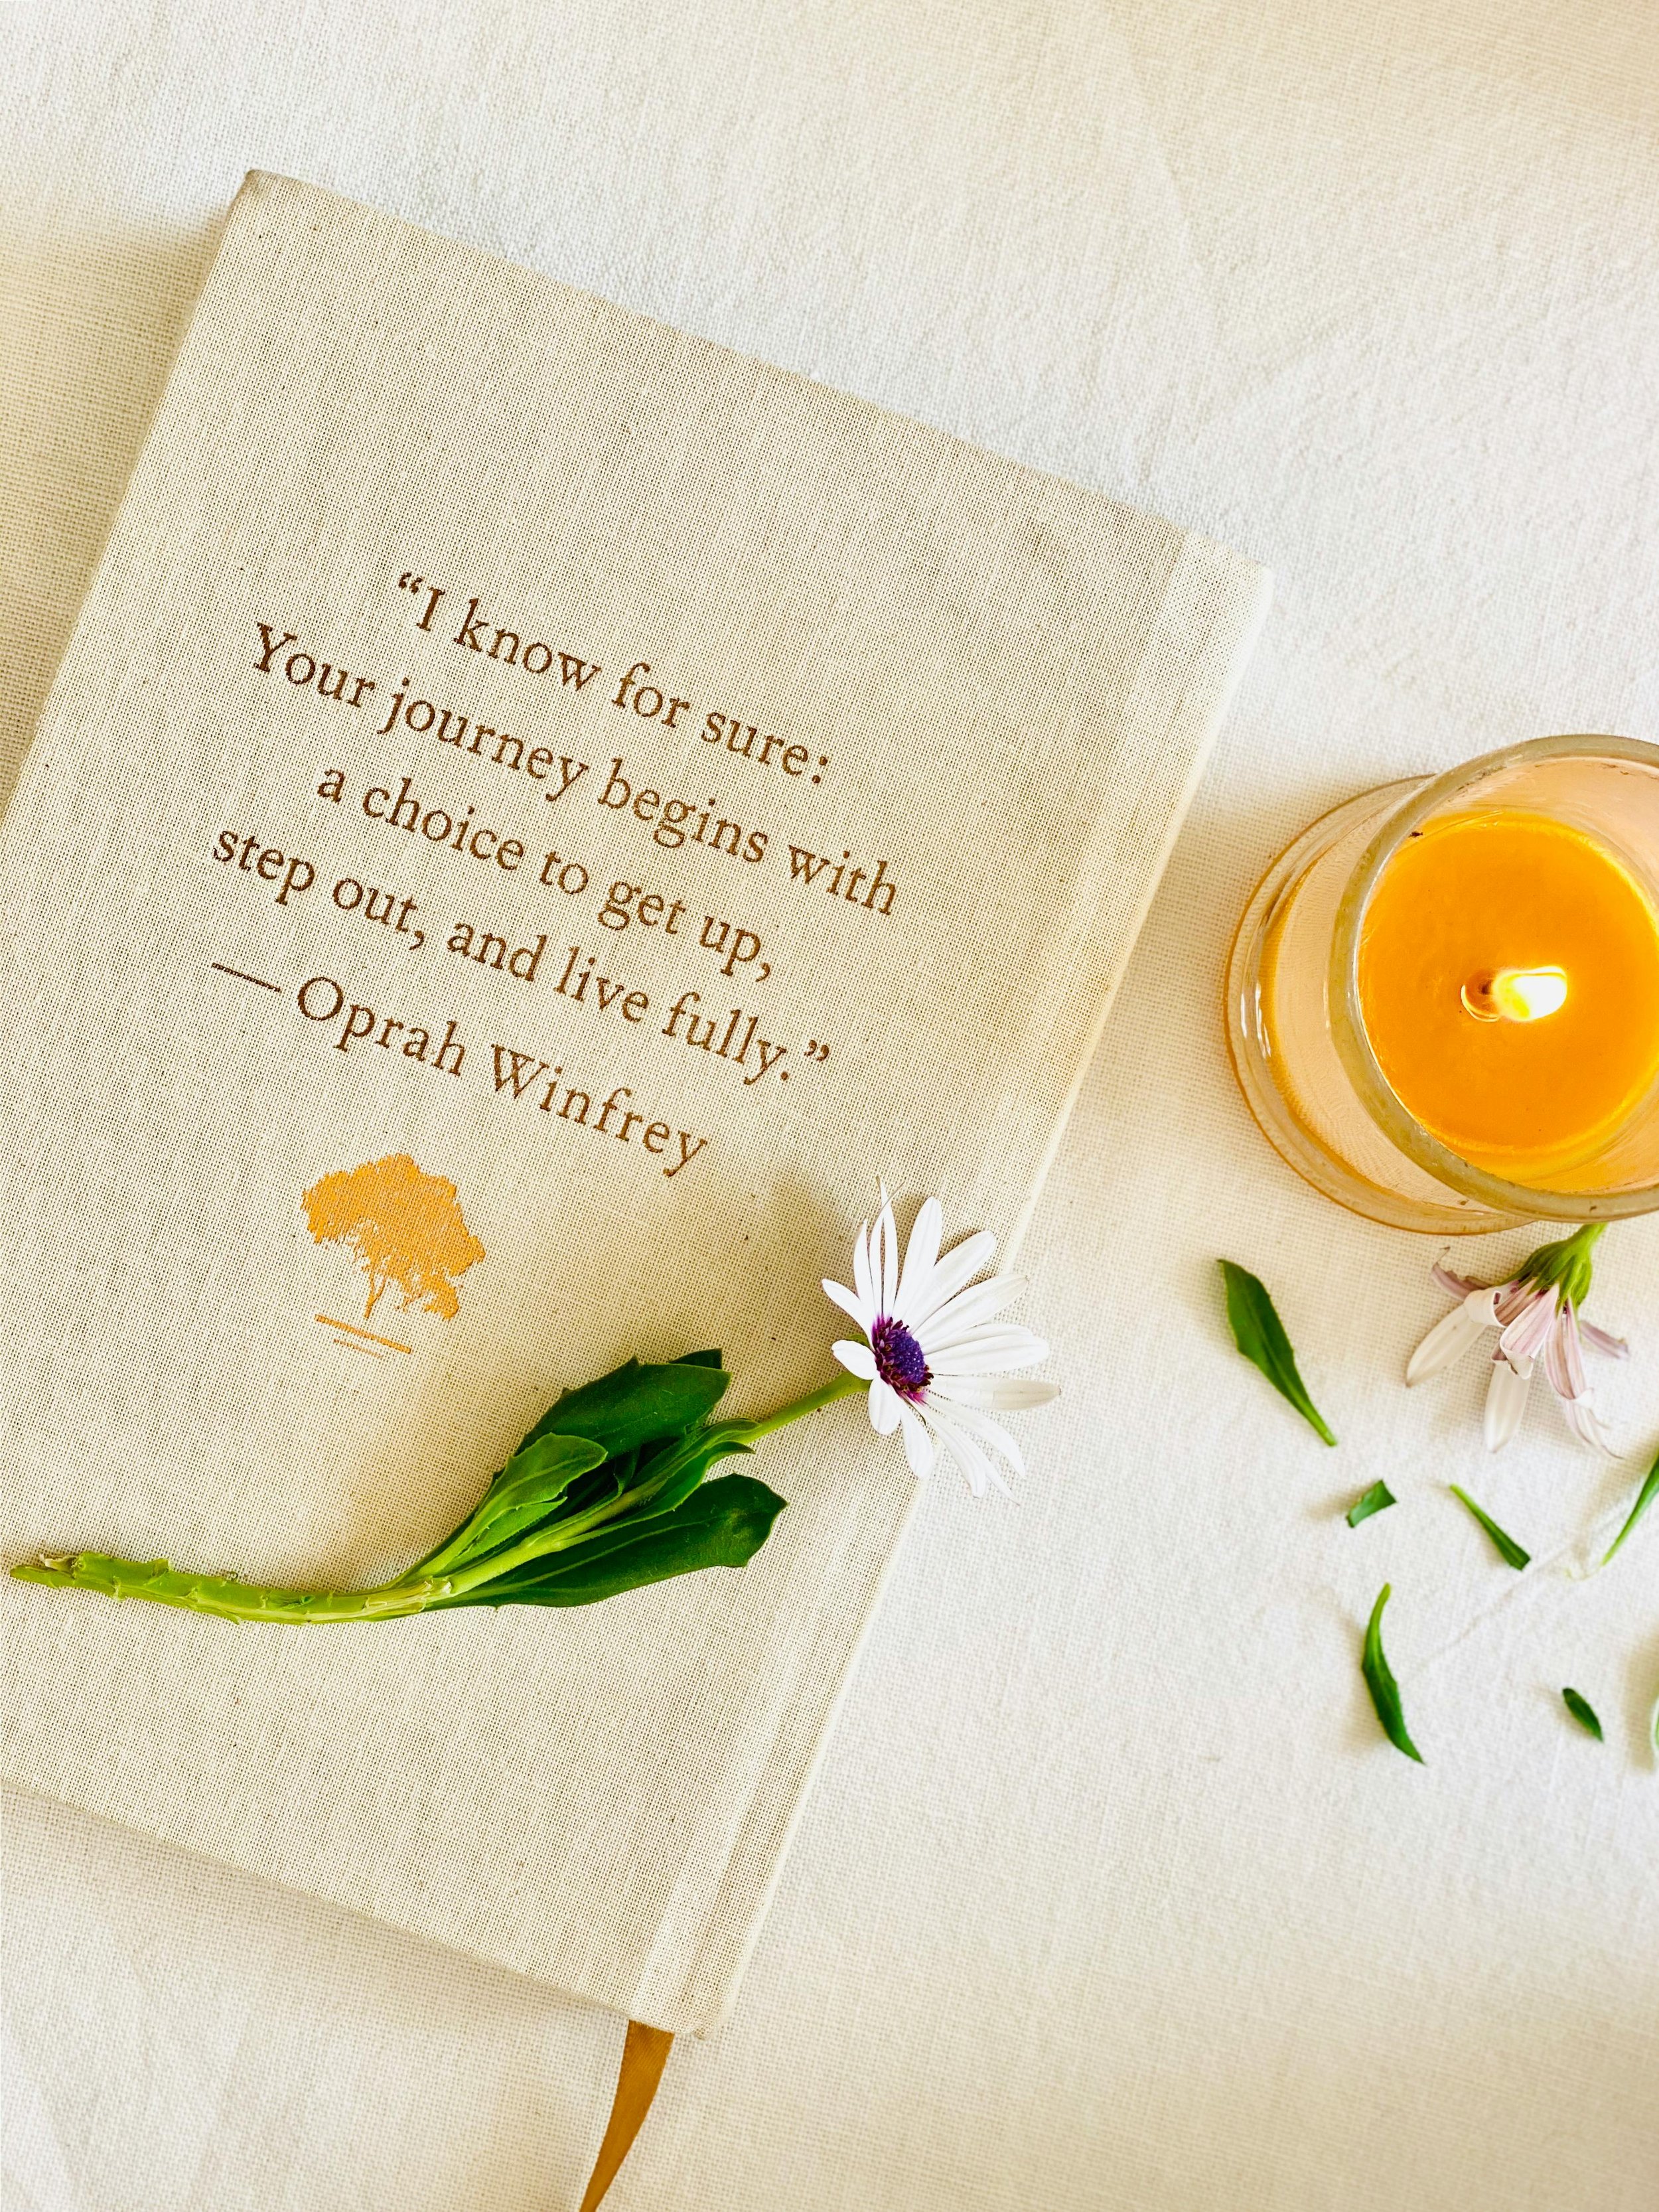 “I know for sure:
Your journey begins with
a choice to get up,
step out, and live fully.”
— Oprah Winfrey